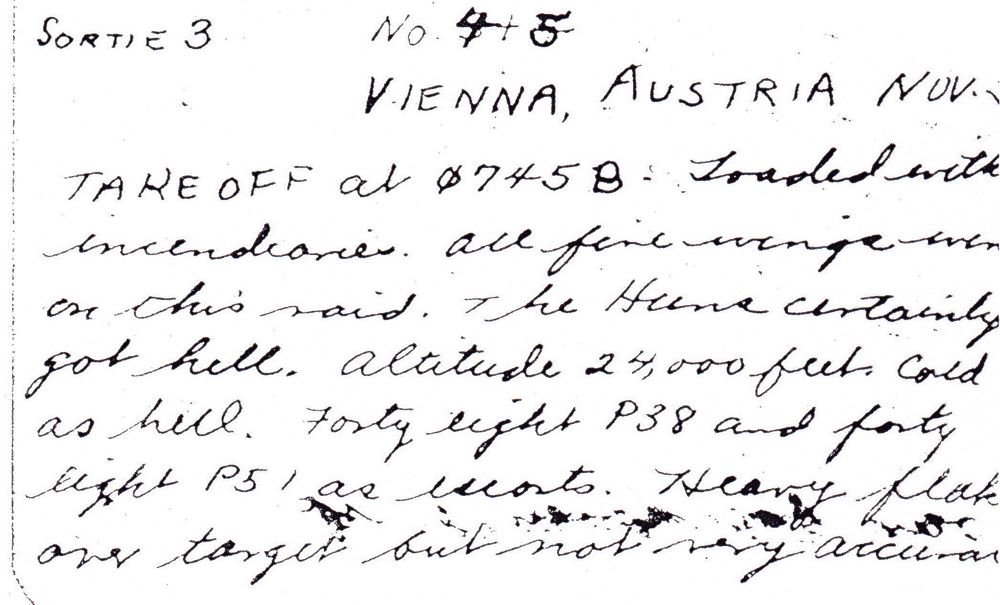 SORTIE 3 No. 4+5
VIENNA, AUSTRIA NOV.
TAKE OFF at 0745B. Loaded with
incendiaries. All five wings wen
on this raid. The Huns certainly
got hell. Altitude 24,000 feet. Cold
as hell. Forty eight P38 and forty
eight P51 as escorts. Heavy flak
over target but not very accura